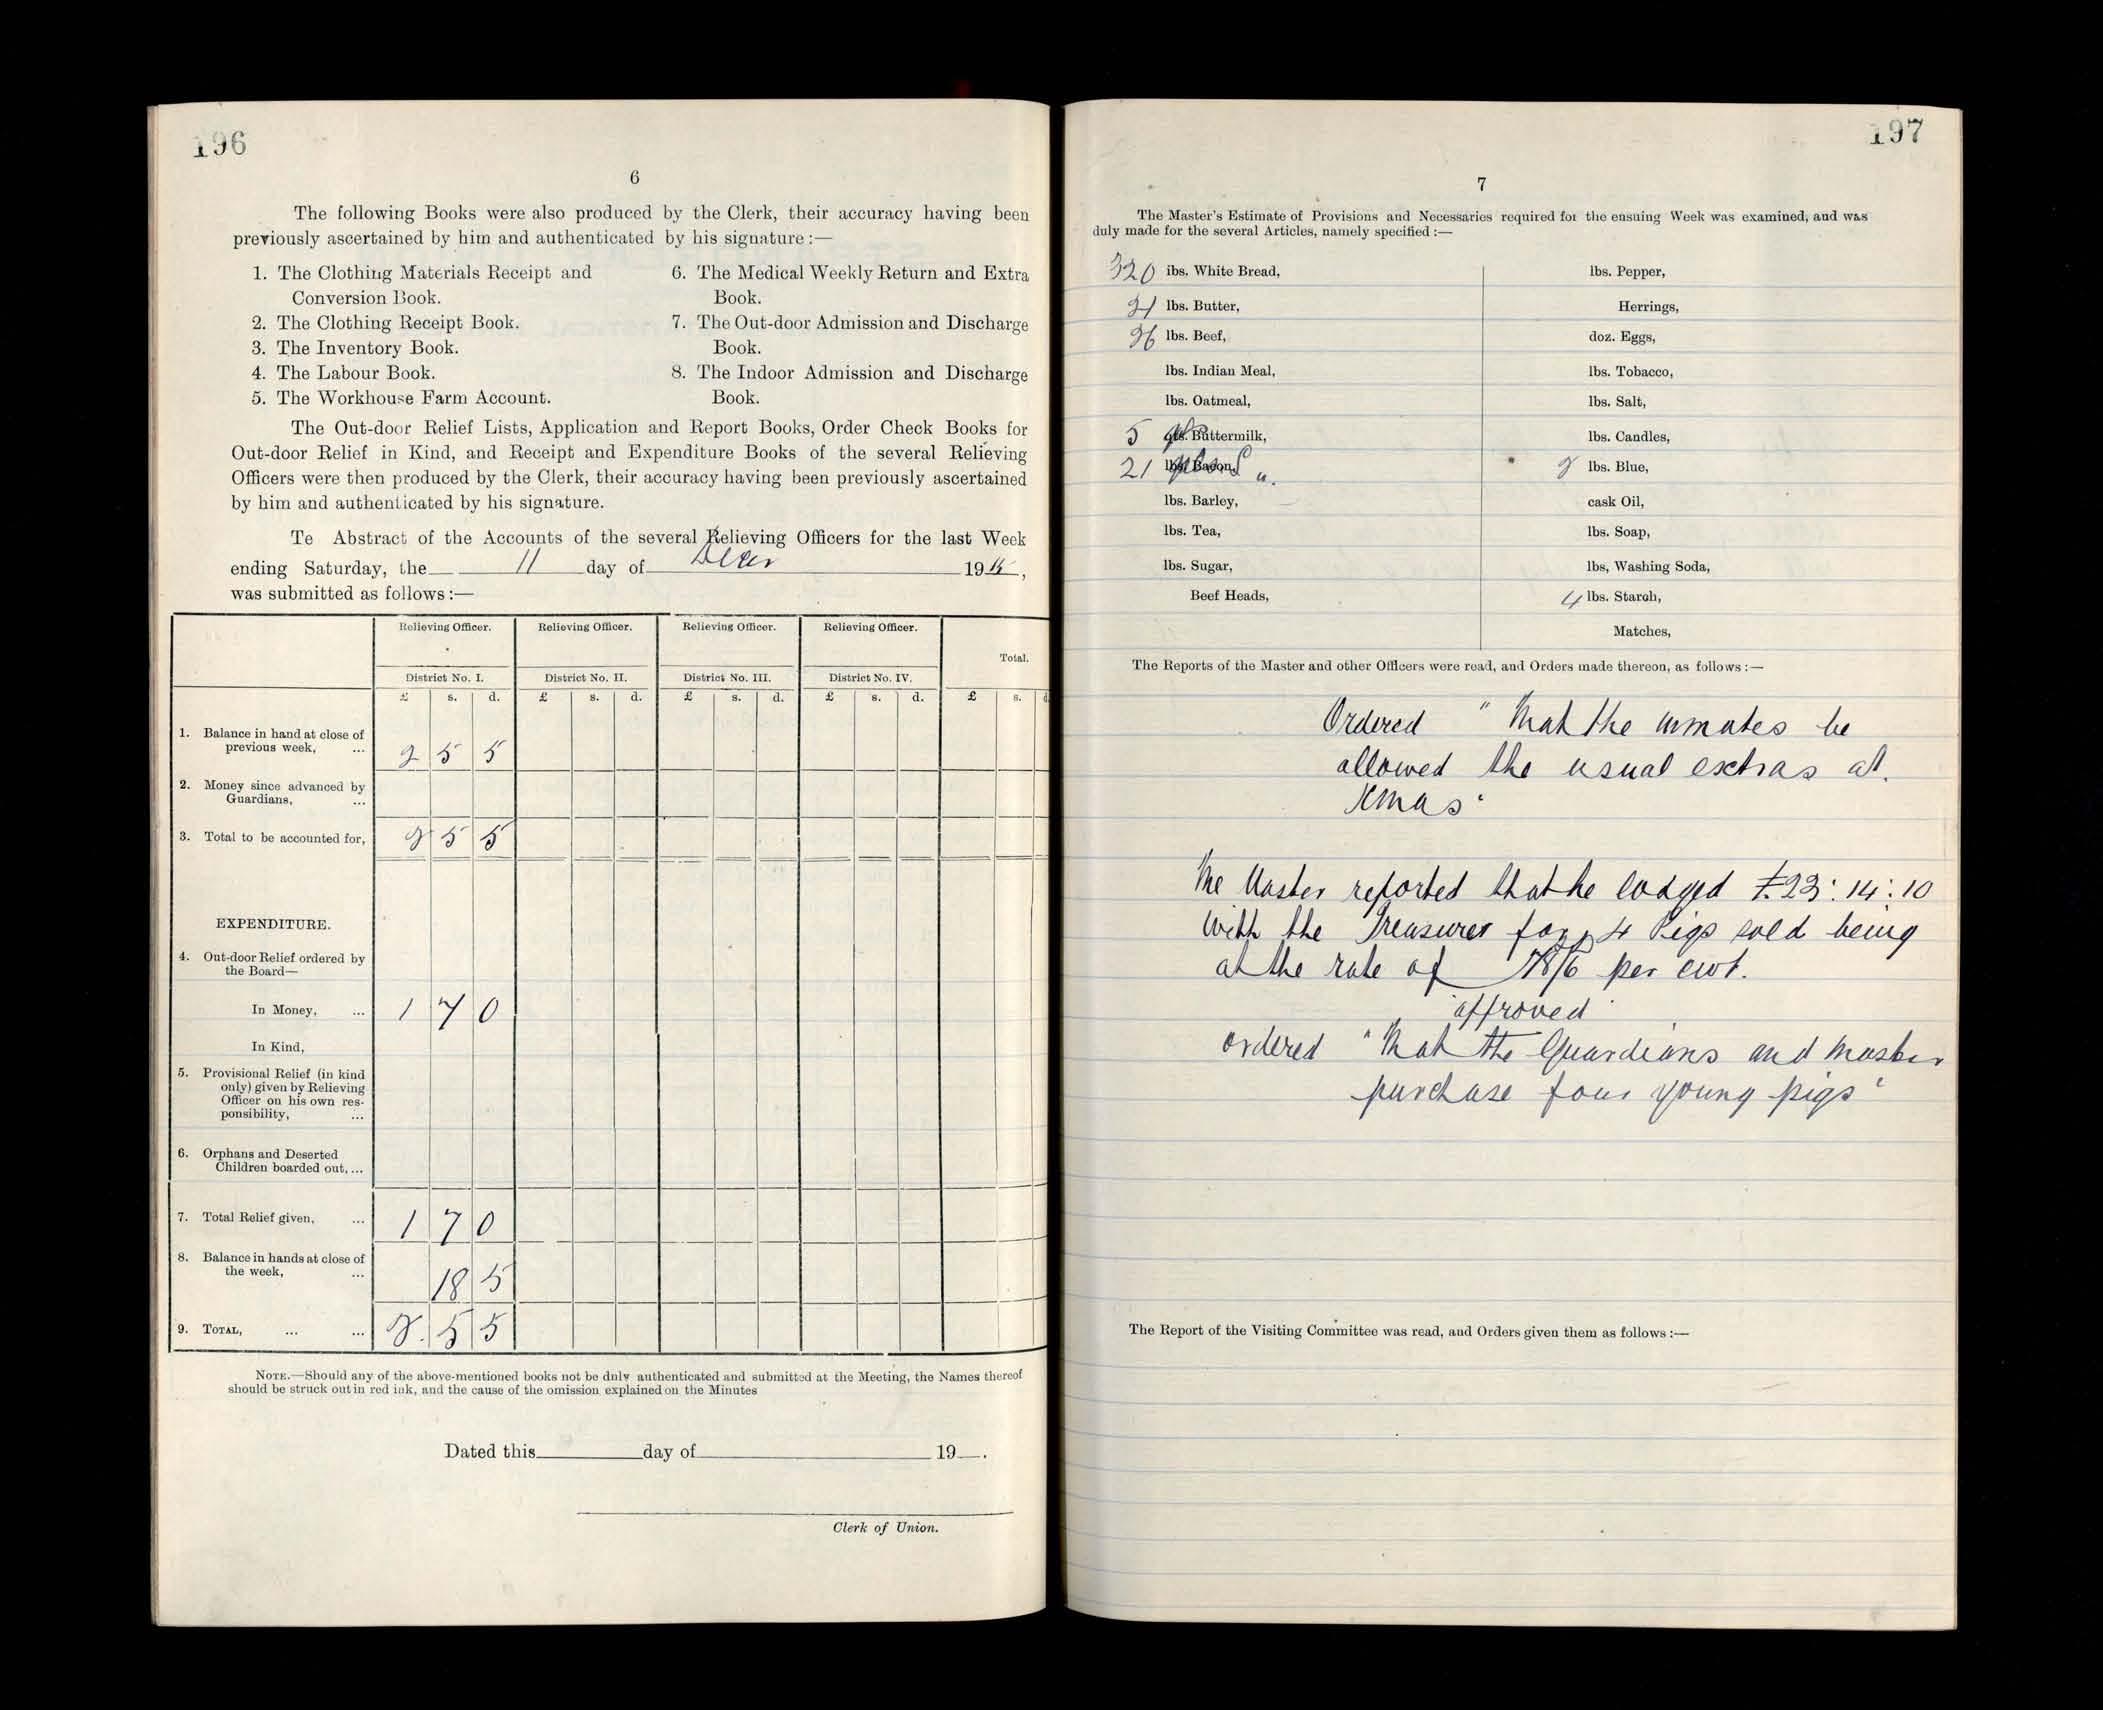 196
6
The following Books were also produced by the Clerk, their accuracy having been
previously ascertained by him and authenticated by his signature :—
1. The Clothing Materials Receipt and
Conversion Book.
2. The Clothing Receipt Book.
3. The Inventory Book.
4. The Labour Book.
5. The Workhouse Farm Account.
6. The Medical Weekly Return and Extra
Book.
7. The Out-door Admission and Discharge
Book.
8. The Indoor Admission and Discharge
Book.
The Out-door Relief Lists, Application and Report Books, Order Check Books for
Out-door Relief in Kind, and Receipt and Expenditure Books of the several Relieving
Officers were then produced by the Clerk, their accuracy having been previously ascertained
by him and authenticated by his signature.
Te Abstract of the Accounts of the several Relieving Officers for the last Week
ending Saturday, the 11 day of Decr 1915,
was submitted as follows :—
Relieving Officer. Relieving Officer. Relieving Officer. Relieving Officer.
Total.
District No. I. District No. II. District No. III. District No. IV.
£ s. d. £ s. d. £ s. d. £ s. d. £ s. d
1. Balance in hand at close of
previous week, ... 2 5 5
2. Money since advanced by
Guardians, ...
3. Total to be accounted for, 2 5 5
EXPENDITURE.
4. Out-door Relief ordered by
the Board—
In Money, ... 1 7 0
In Kind,
5. Provisional Relief (in kind
only) given by Relieving
Officer on his own res-
ponsibility, ...
6. Orphans and Deserted
Children boarded out, ...
7. Total Relief given, ... 1 7 0
8. Balance in hands at close of
the week, ... 18 5
9. TOTAL, ... ... 2 . 5 5
NOTE.—Should any of the above-mentioned books not be duly authenticated and submitted at the Meeting, the Names thereof
should be struck out in red ink, and the cause of the omission explained on the Minutes
Dated this day of 19 .
Clerk of Union.
197
7
The Master's Estimate of Provisions and Necessaries required for the ensuing Week was examined, and was
duly made for the several Articles, namely specified :—
320 lbs. White Bread,
21 lbs. Butter,
26 lbs. Beef,
lbs. Indian Meal,
lbs. Oatmeal,
5 Buttermilk,
21 lbs. Bacon, "
lbs. Barley,
lbs. Tea,
lbs. Sugar,
Beef Heads,
lbs. Pepper,
Herrings,
doz. Eggs,
lbs. Tobacco,
lbs. Salt,
lbs. Candles,
2 lbs. Blue,
cask Oil,
lbs. Soap,
lbs, Washing Soda,
4 lbs. Starch,
Matches,
The Reports of the Master and other Officers were read, and Orders made thereon, as follows :—
Ordered "That the inmates be
allowed the usual extras at
Xmas"
The Master reported that he lodged £23:14:10
with the Treasurer for 4 Pigs sold being
at the rate of 78/6 per cwt.
"approved"
ordered "That the Guardians and Master
purchase four young pigs"
The Report of the Visiting Committee was read, and Orders given them as follows :—